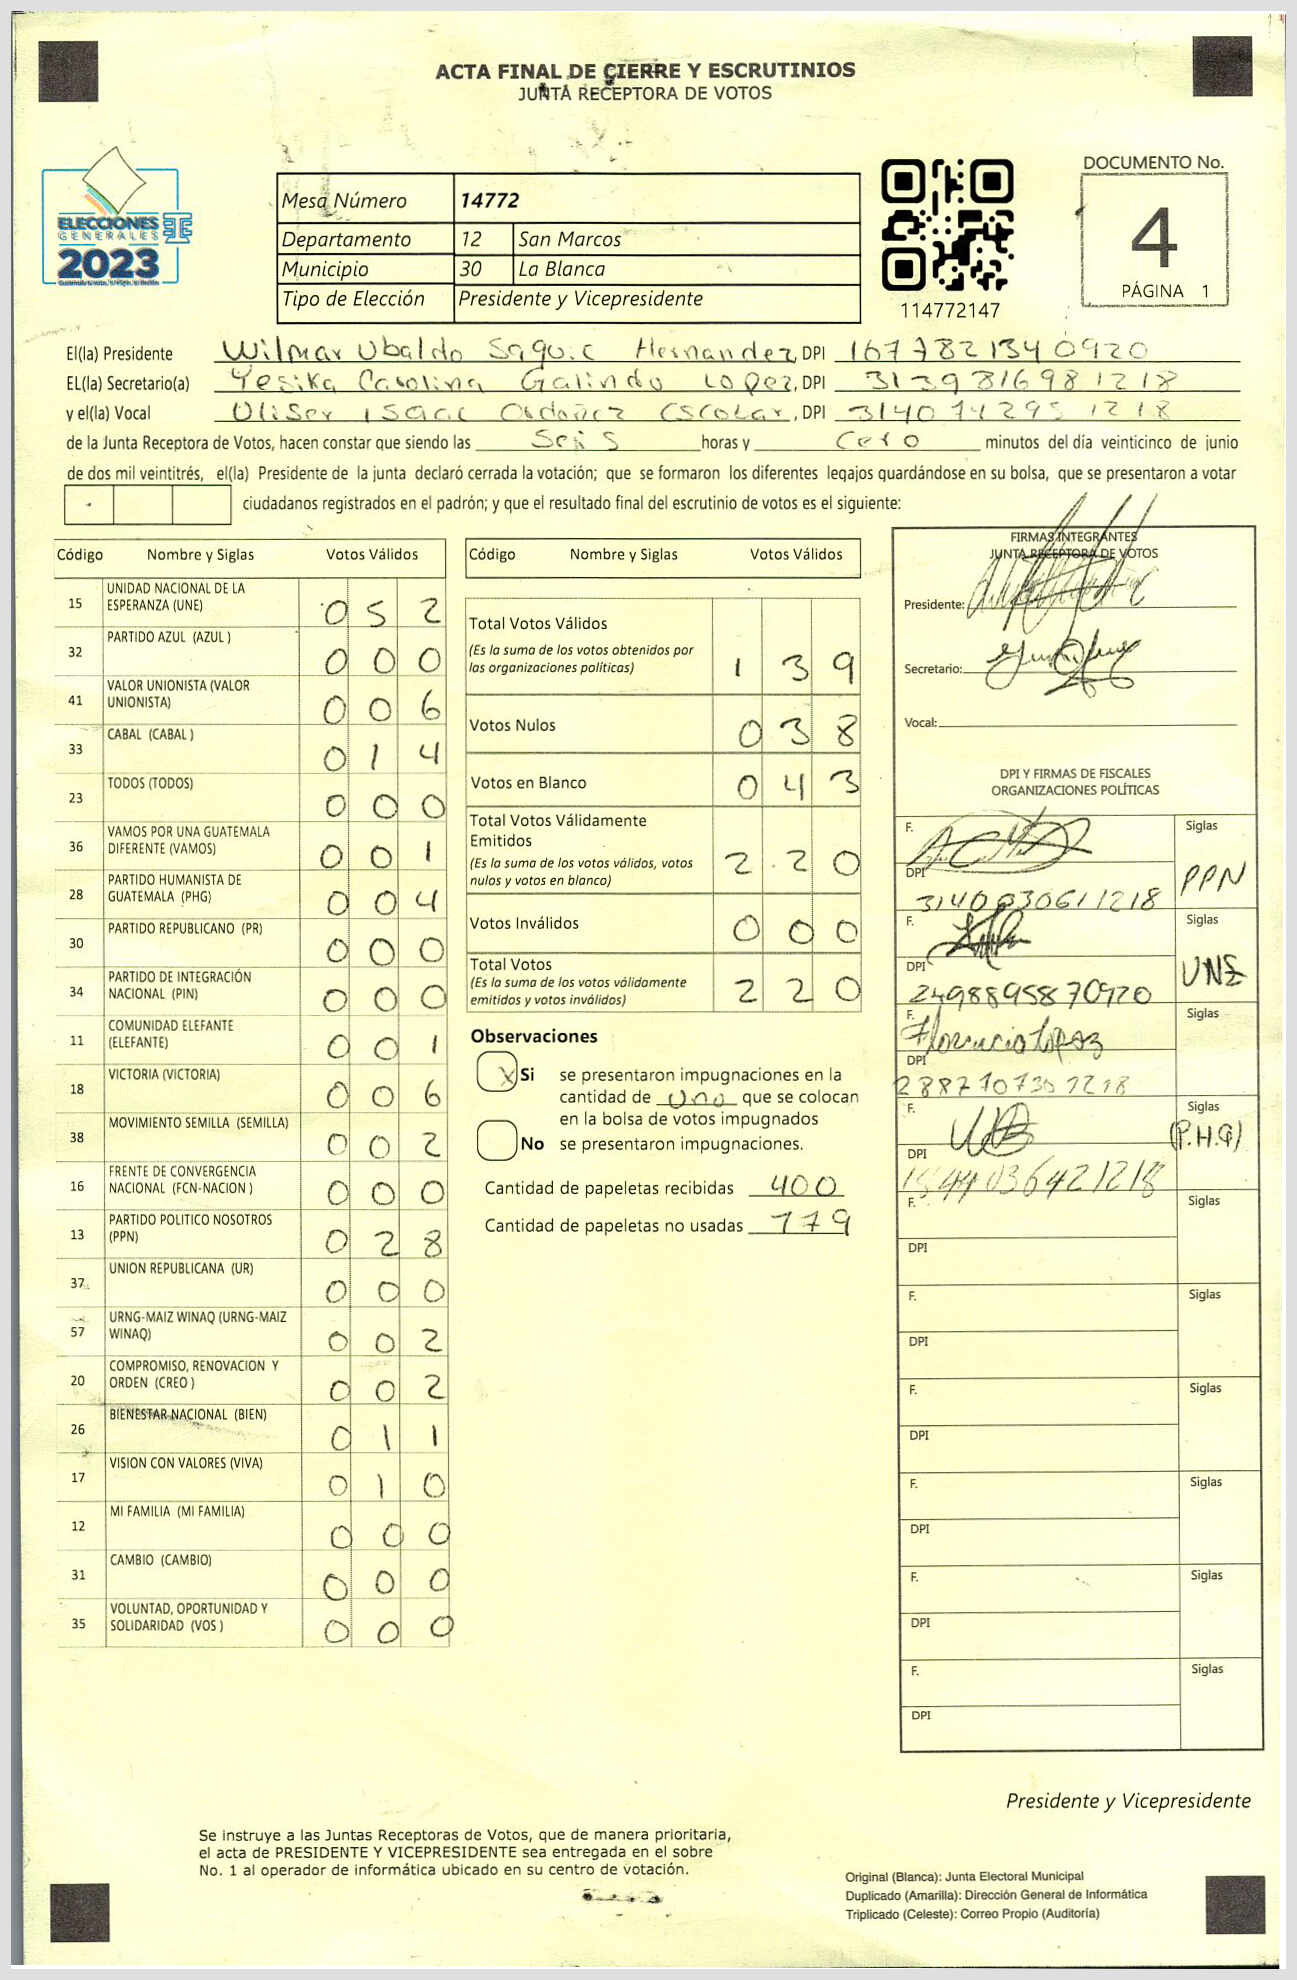 ACTA FINAL DE CIERRE Y ESCRUTINIOS
JUNTA RECEPTORA DE VOTOS
ELECCIONES
GENERALES
2023
Mesa Número 14772
Departamento 12 San Marcos
Municipio 30 La Blanca
Tipo de Elección Presidente y Vicepresidente
114772147
DOCUMENTO No.
4
PÁGINA 1
El(la) Presidente Wilmar Ubaldo Saquic Hernandez, DPI 1677821340920
EL(la) Secretario(a) Yesika Carolina Galindo Lopez, DPI 3139816981218
y el(la) Vocal Uliser Isaac Ordoñez Escobar, DPI 3140742951218
de la Junta Receptora de Votos, hacen constar que siendo las Seis horas y Cero minutos del día veinticinco de junio
de dos mil veintitrés, el(la) Presidente de la junta declaró cerrada la votación; que se formaron los diferentes legajos guardándose en su bolsa, que se presentaron a votar
ciudadanos registrados en el padrón; y que el resultado final del escrutinio de votos es el siguiente:
Código Nombre y Siglas Votos Válidos
15 UNIDAD NACIONAL DE LA ESPERANZA (UNE) 052
32 PARTIDO AZUL (AZUL ) 000
41 VALOR UNIONISTA (VALOR UNIONISTA) 006
33 CABAL (CABAL ) 014
23 TODOS (TODOS) 000
36 VAMOS POR UNA GUATEMALA DIFERENTE (VAMOS) 001
28 PARTIDO HUMANISTA DE GUATEMALA (PHG) 004
30 PARTIDO REPUBLICANO (PR) 000
34 PARTIDO DE INTEGRACIÓN NACIONAL (PIN) 000
11 COMUNIDAD ELEFANTE (ELEFANTE) 001
18 VICTORIA (VICTORIA) 006
38 MOVIMIENTO SEMILLA (SEMILLA) 002
16 FRENTE DE CONVERGENCIA NACIONAL (FCN-NACION ) 000
13 PARTIDO POLITICO NOSOTROS (PPN) 028
37 UNION REPUBLICANA (UR) 000
57 URNG-MAIZ WINAQ (URNG-MAIZ WINAQ) 002
20 COMPROMISO, RENOVACION Y ORDEN (CREO ) 002
26 BIENESTAR NACIONAL (BIEN) 011
17 VISION CON VALORES (VIVA) 010
12 MI FAMILIA (MI FAMILIA) 000
31 CAMBIO (CAMBIO) 000
35 VOLUNTAD, OPORTUNIDAD Y SOLIDARIDAD (VOS ) 000
Código Nombre y Siglas Votos Válidos
Total Votos Válidos
(Es la suma de los votos obtenidos por
las organizaciones políticas) 139
Votos Nulos 038
Votos en Blanco 043
Total Votos Válidamente
Emitidos
(Es la suma de los votos válidos, votos
nulos y votos en blanco) 220
Votos Inválidos 000
Total Votos
(Es la suma de los votos válidamente
emitidos y votos inválidos) 220
Observaciones
X Si se presentaron impugnaciones en la
cantidad de Uno que se colocan
en la bolsa de votos impugnados
No se presentaron impugnaciones.
Cantidad de papeletas recibidas 400
Cantidad de papeletas no usadas 179
FIRMAS INTEGRANTES
JUNTA RECEPTORA DE VOTOS
Presidente:
Secretario:
Vocal:
DPI Y FIRMAS DE FISCALES
ORGANIZACIONES POLÍTICAS
F. Siglas
DPI PPN
3140830611218
F. Siglas
DPI UNE
2498895870920
F. Florencio Lopez Siglas
DPI
2887107301218
F. Siglas
DPI (P.H.G)
F. Siglas
DPI
F. Siglas
DPI
F. Siglas
DPI
F. Siglas
DPI
F. Siglas
DPI
F. Siglas
DPI
Presidente y Vicepresidente
Se instruye a las Juntas Receptoras de Votos, que de manera prioritaria,
el acta de PRESIDENTE Y VICEPRESIDENTE sea entregada en el sobre
No. 1 al operador de informática ubicado en su centro de votación.
Original (Blanca): Junta Electoral Municipal
Duplicado (Amarilla): Dirección General de Informática
Triplicado (Celeste): Correo Propio (Auditoría)